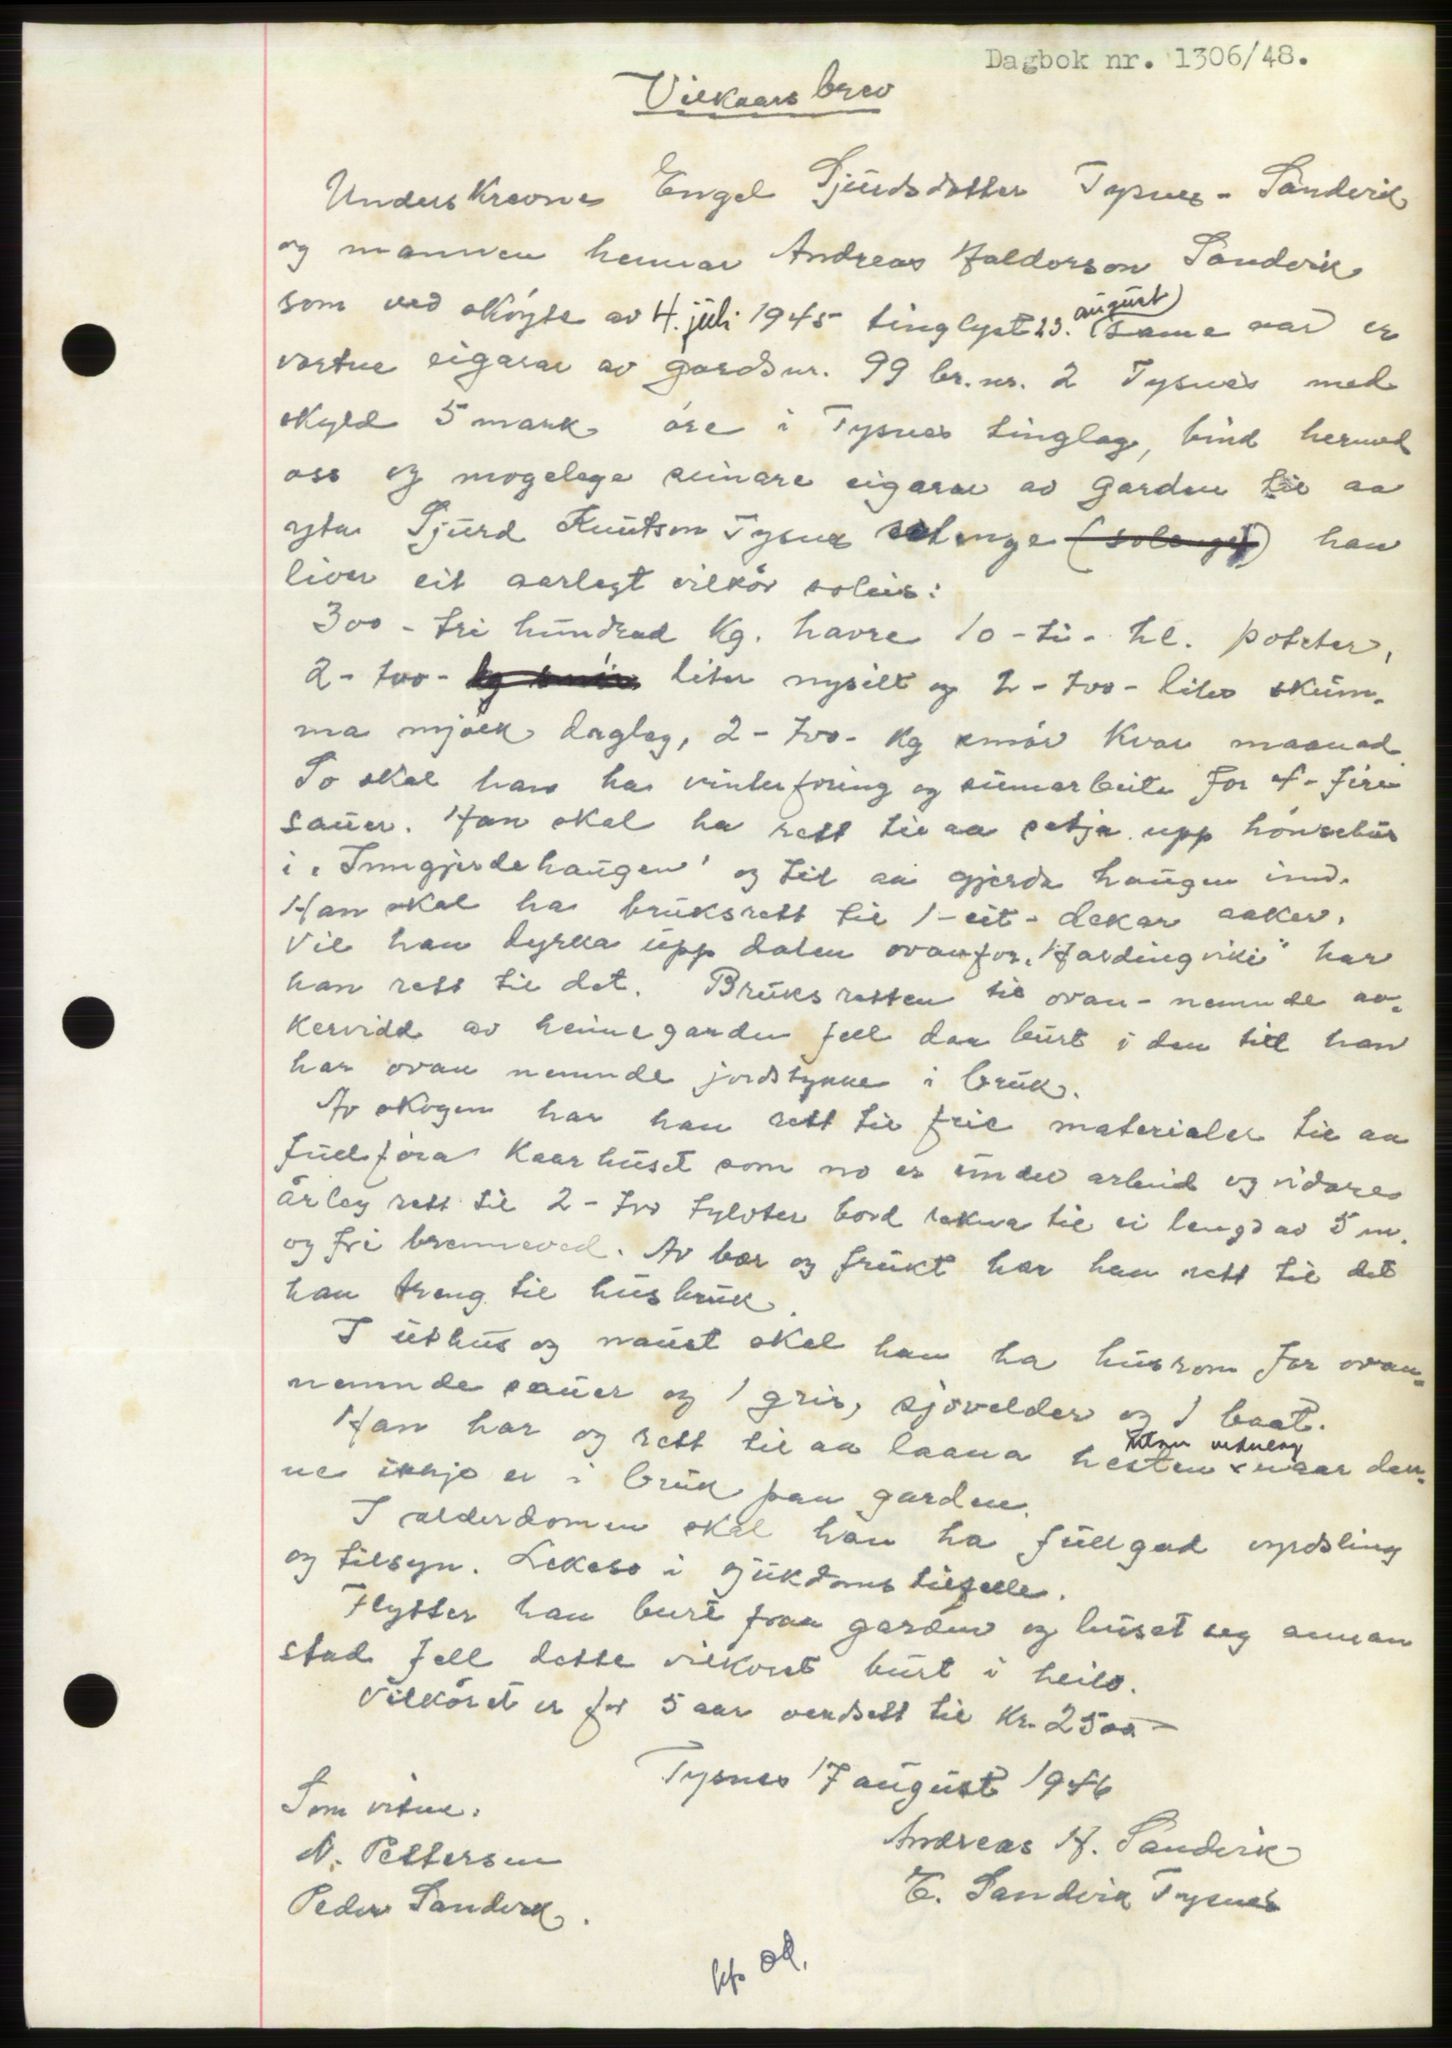 Dagbok nr. 1306/48.
Vilkaarsbrev
Underskrevne Engel Sjursdotter Tysnes - Sandvik
og mannen hennar Andreas Haldorson Sandvik
som ved skøyte av 4. juli 1945 tinglyst 23. august same aar er
vortne eigarar av gardsnr. 99 br.nr. 2 Tysnes med
skyld 5 mark øre i Tysnes tinglag, bind hermed
oss og mogelege seinare eigarar av garden til aa
yta Sjurd Knutson Tysnes solenge (solenge) han
liver eit aarlegt vilkår soleis:
300 - tri hundrad kg. havre 10 - ti - hl. poteter,
2 - two - kg smør liter nysilt og 2 - two - liter skum-
ma mjølk dagleg, 2 - two - kg smør kvar maanad
So skal han ha vinterforing og sumarbeite for 4 - fire
sauer. Han skal ha rett til aa setja upp hønsehus
i "Inngjerdehaugen" og til aa gjerda haugen inn.
Han skal ha bruksrett til 1 - eit - dekar aaker.
Vil han dyrka upp dalen ovanfor "Hardingviki" har
han rett til det. Bruksretten til ovan-nemnde aa-
kervidd av heimegarden fell daa burt i den tid han
har ovan nemnde jordstykke i bruk.
Av skogen har han rett til frie materialer til aa
fullføra kaarhuset som no er under arbeid og vidare
årleg rett til 2 - two tylvter bord rekna til ei lengd av 5 m.
og fri brenneved. Av bær og frukt har han rett til det
han treng til husbruk.
I uthus og naust skal han ha husrom for ovan-
nemnde sauer og 1 gris, sjøvelder og 1 baat.
Han har og rett til aa laana hesten naar den-
ne ikkje er i bruk paa garden.
I alderdomen skal han ha fullgod vyrdsling
og tilsyn. Lækeso i sjukdoms tilfelle.
Flytter han burt fraa garden og buset seg annan
stad fell dette vilkoret burt i heilo.
Vilkåret er for 5 aar verdsett til kr. 2500 -
Tysnes 17 august 1946
Som vitne:
N. Pettersen
Peder Sandvik.
Andreas H. Sandvik
E. Sandvik Tysnes